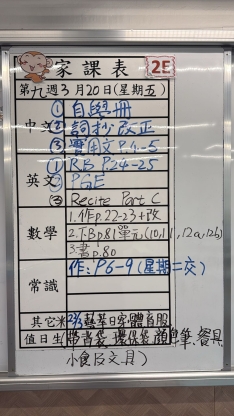 家課表 2E
第九週3月20日(星期五)
中文 ① 自學冊
② 詞抄改正
③ 實用文P.4-5
英文 ① RB P24-25
② PGE
③ Recite Part C
數學 1.作p.22-23+改
2.下Bp.81單元(10,11,12a,12b)
3.書p.80
常識 作:P6-9(星期二交)
其它
值日生 帶書袋,環保袋,顏色筆,餐具
小食及文具)